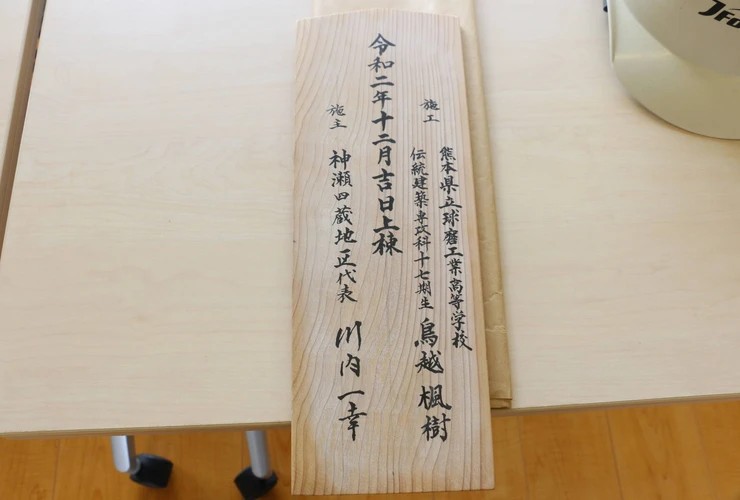 熊本県立球磨工業高等学校
施工 伝統建築専攻科十七期生 鳥越 楓樹
令和二年十二月吉日上棟
施主 神瀬四蔵地正代表 川内一幸